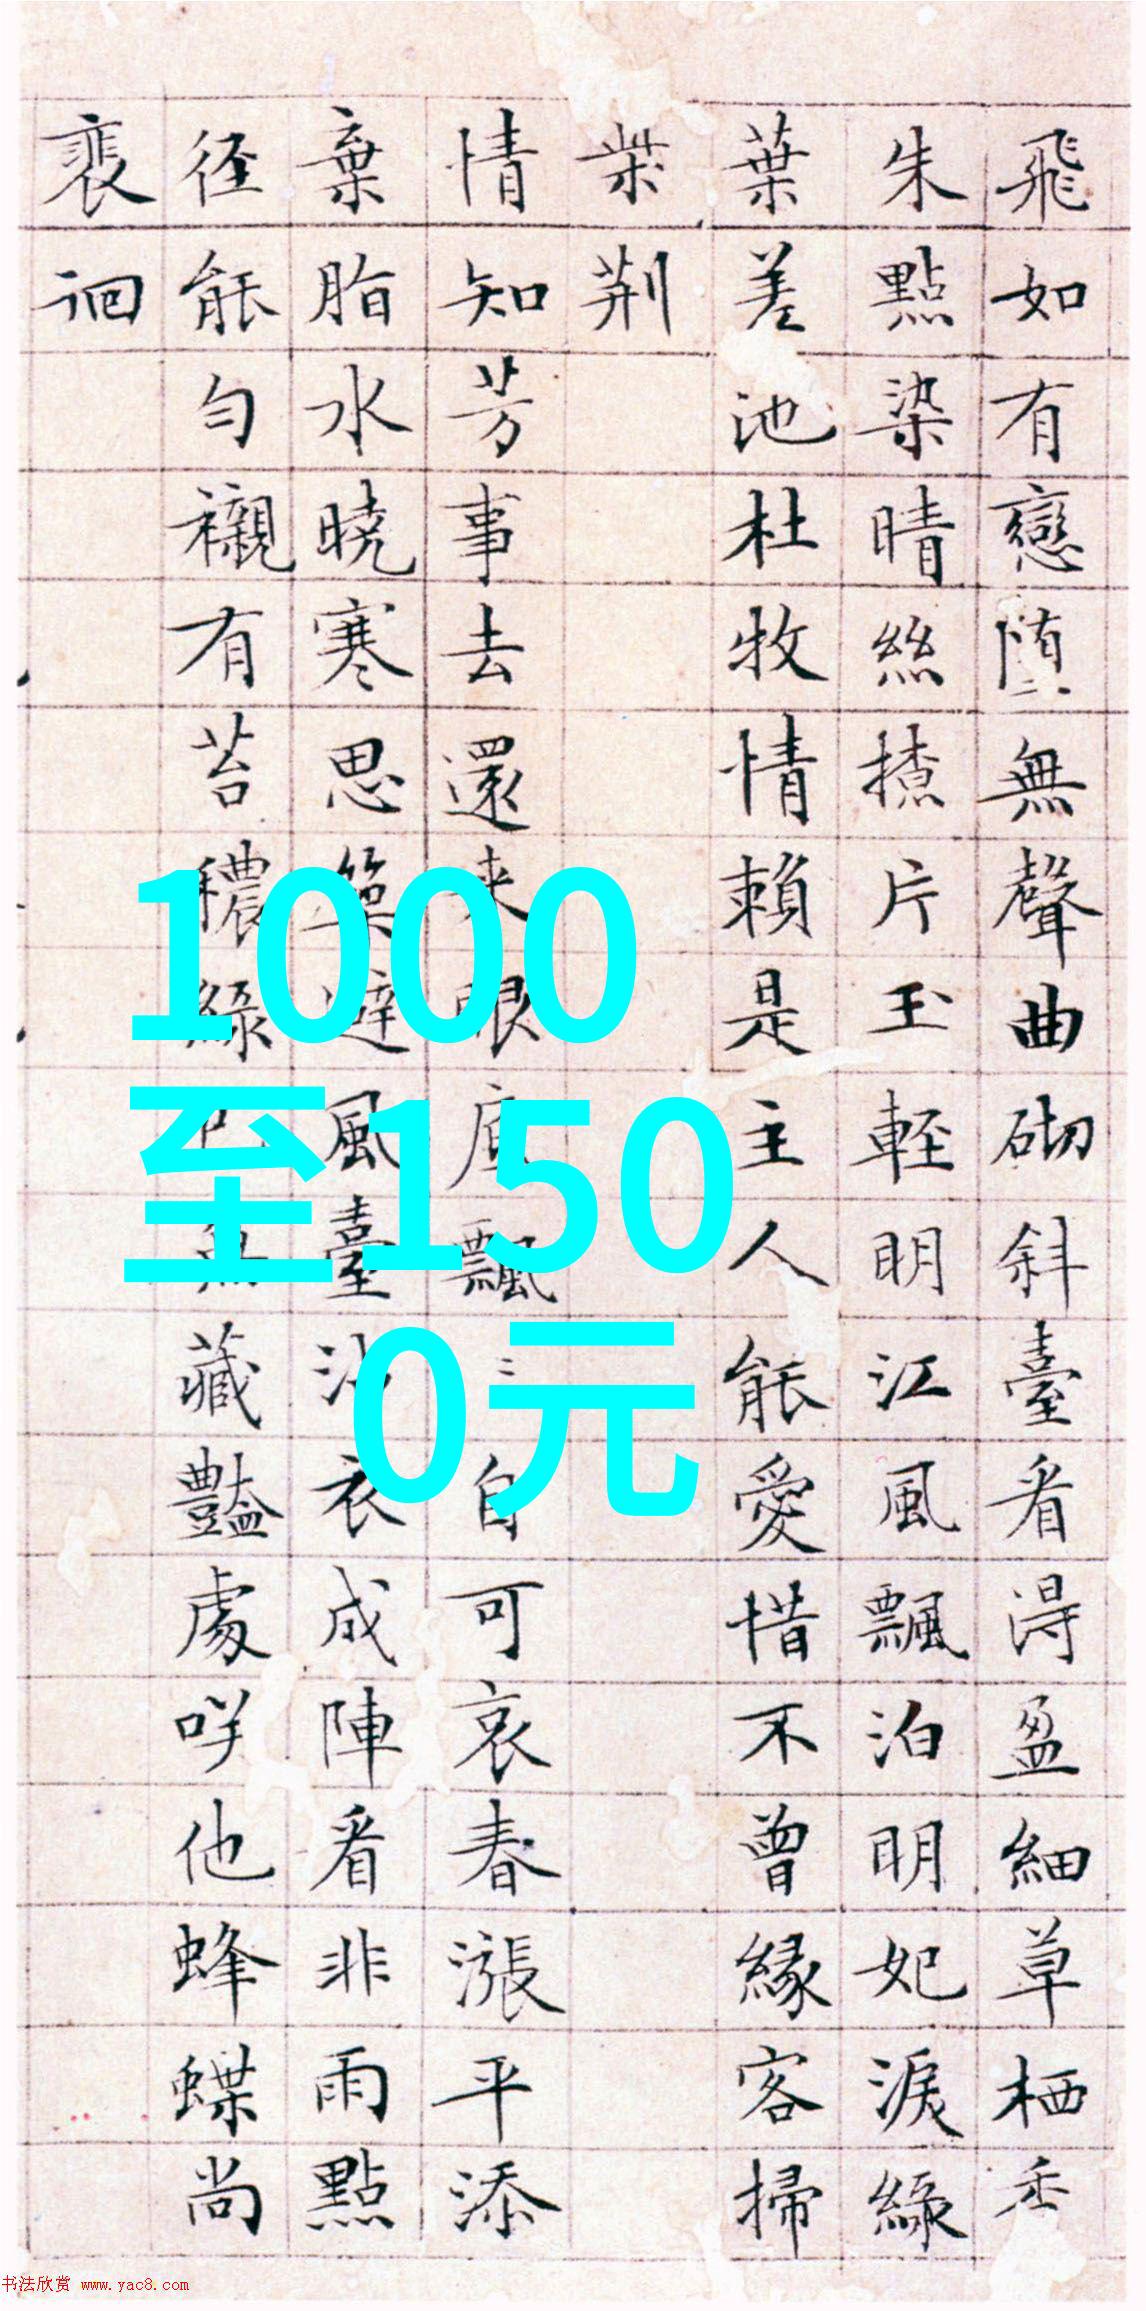 飛如有戀堕無聲曲砌斜臺看得盈細草栖香
朱點染晴絲揸片玉輕明江風飄泊明妃淚綠
葉差池杜牧情賴是主人能愛惜不曾緣客掃
柴荆
情知芳事去還来眼底飄〻自可哀春漲平添
棄脂水曉寒思築避風臺沾衣成陣看非雨點
径能勻襯有苔穠綠已無藏豔處咲他蜂蝶尚
裴徊
1000
至150
0元
书法欣赏 www.yac8.com